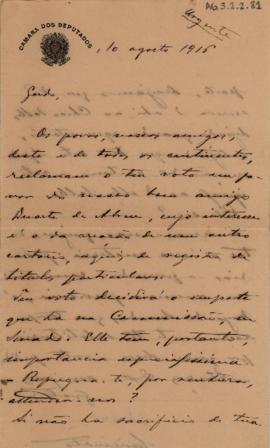 AG 3.2.2.81
Urgente
CAMARA DOS DEPUTADOS
10 agosto 1915
Os povos, nossos amigos,
deste e de todos os continentes,
reclamam o teu voto em fa-
vor do nosso bom amigo
Duarte de Abreu, cujo interesse
é o da creação de um outro
cartorio, aqui, de registo de
titulos particulares.
Teu voto decidirá o empate
que ha na Commissão, no
Senado. Elle tem, portanto,
importancia especialissima
— Repugna-te, por ventura,
attender-nos?
Si não ha sacrificio de tua